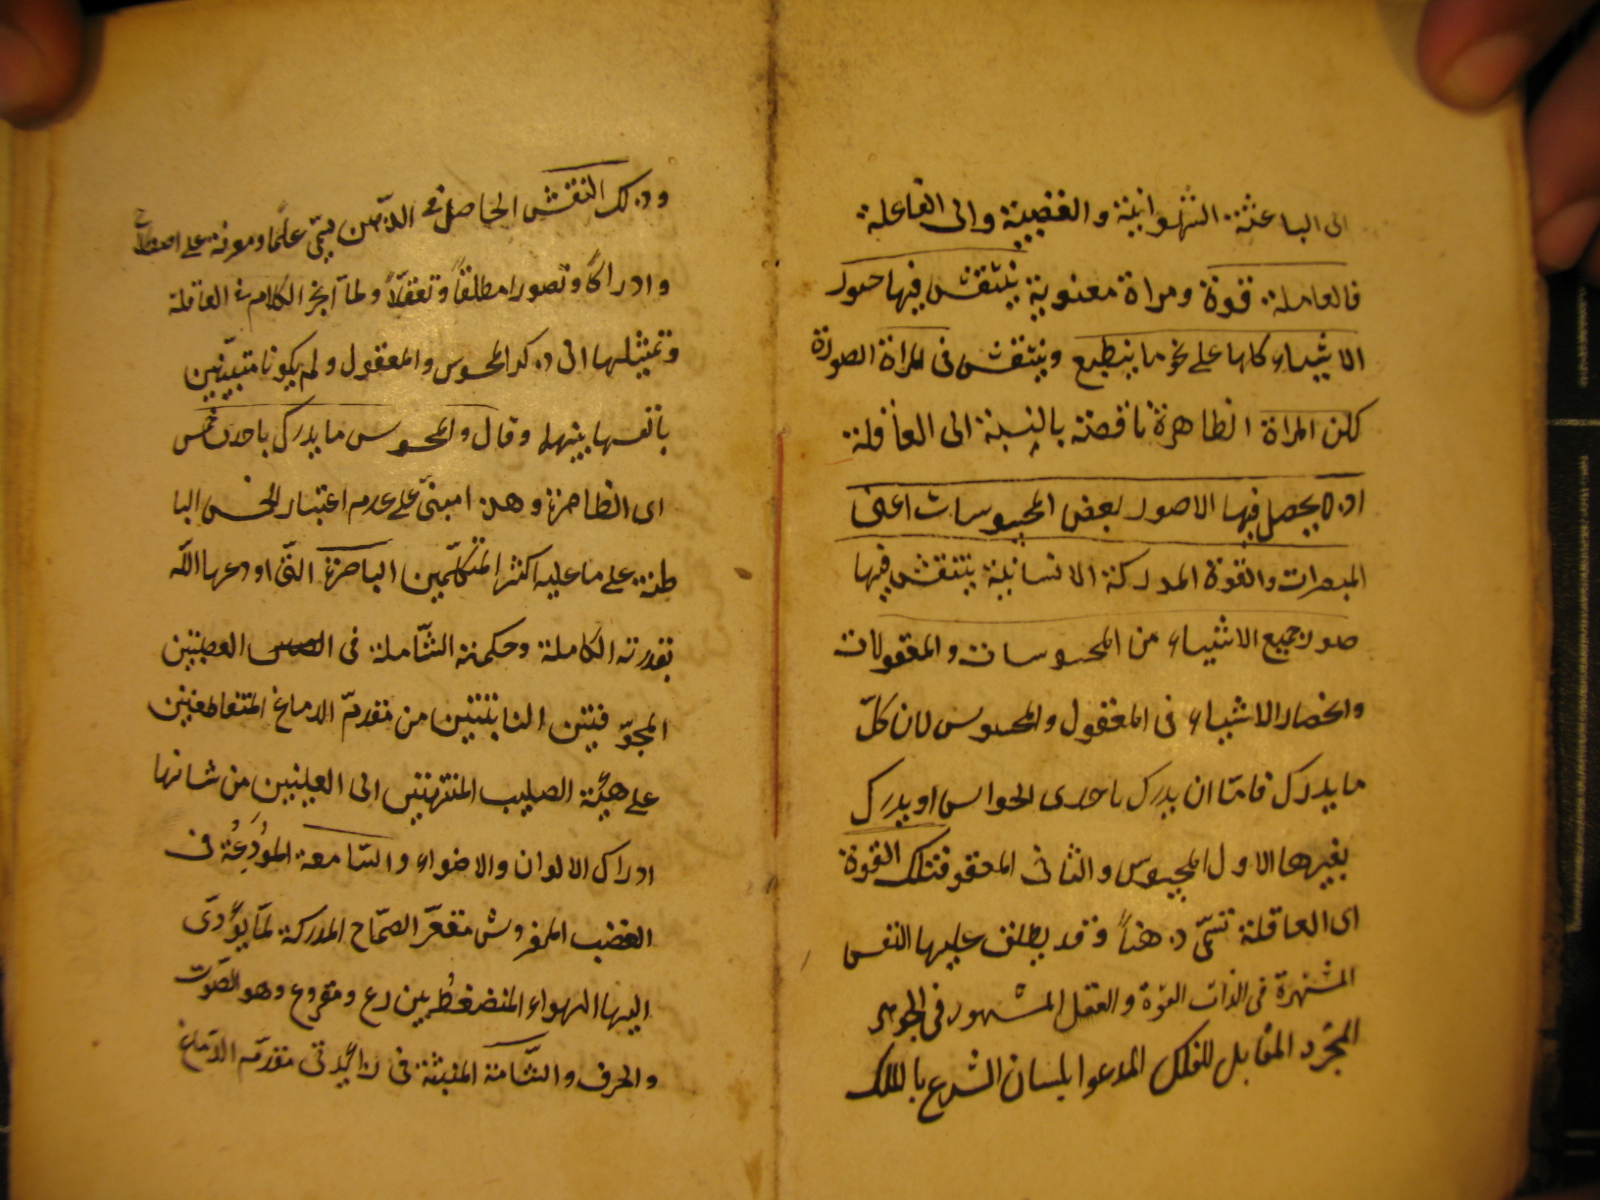 الى الباعثة الشهوانية والغضبية والى الفاعلة
فالعاملة قوة ومراة معنوية ينتقش فيها صور
الاشياء كلها على نحو ما ينطبع وينتقش فى المراة الصورة
لكن المراة الظاهرة ناقصة بالنسبة الى العاقلة
اذ لا يحصل فيها الا صور بعض المحسوسات اعنى
المبصرات والقوة المدركة الانسانية ينتقش فيها
صور جميع الاشياء من المحسوسات والمعقولات
وانحصار الاشياء فى المعقول والمحسوس لان كلّ
ما يدرك فامّا ان يدرك باحدى الحواس او يدرك
بغيرها الاول المحسوس والثانى المعقو فتلك القوة
اى العاقلة تسمّى ذهناً وقد يطلق عليها النفس
المشتهرة فى الذات القوة والعقل المشهور فى الجوهر
المجرد المقابل للفلك المدعوا بلسان الشرع بالملك
وذلك النقش الحاصل فى الذّهن يسمّى علماً ومعرفة على اصطلاح
وادراكاً وتصورا مطلقاً وتعقّلاً ولمّا انجر الكلام فى العاقلة
وتمثيلها الى ذكر المحسوس والمعقول ولم يكونا متبيّنين
بانفسها بينهما وقال والمحسوس ما يدرك باحدى خمس
اى الظاهرة وهذا مبنىّ على عدم اعتبار الخمس البا
طنة على ما عليه اكثر المتكلّمين الباصرة الّتى اودعها اللّه
بقدرته الكاملة وحكمته الشّاملة فى العصبتين
المجوّفتين النابتتين من مقدمّ الدماغ المتقاطعتين
على هيئة الصليب المنتهيتين الى العينين من شانها
ادراك الالوان والاضواء والسّامعة المُودَعُة فى
العصب المفروش مقعّر الصّماخ المدركة لمّا يؤدّى
اليها الهواء المنضغط بين قارع ومقروع وهو الصّوت
والحرف والشّامّة المنبثّة فى زائدتى مقدّم الدّماغ